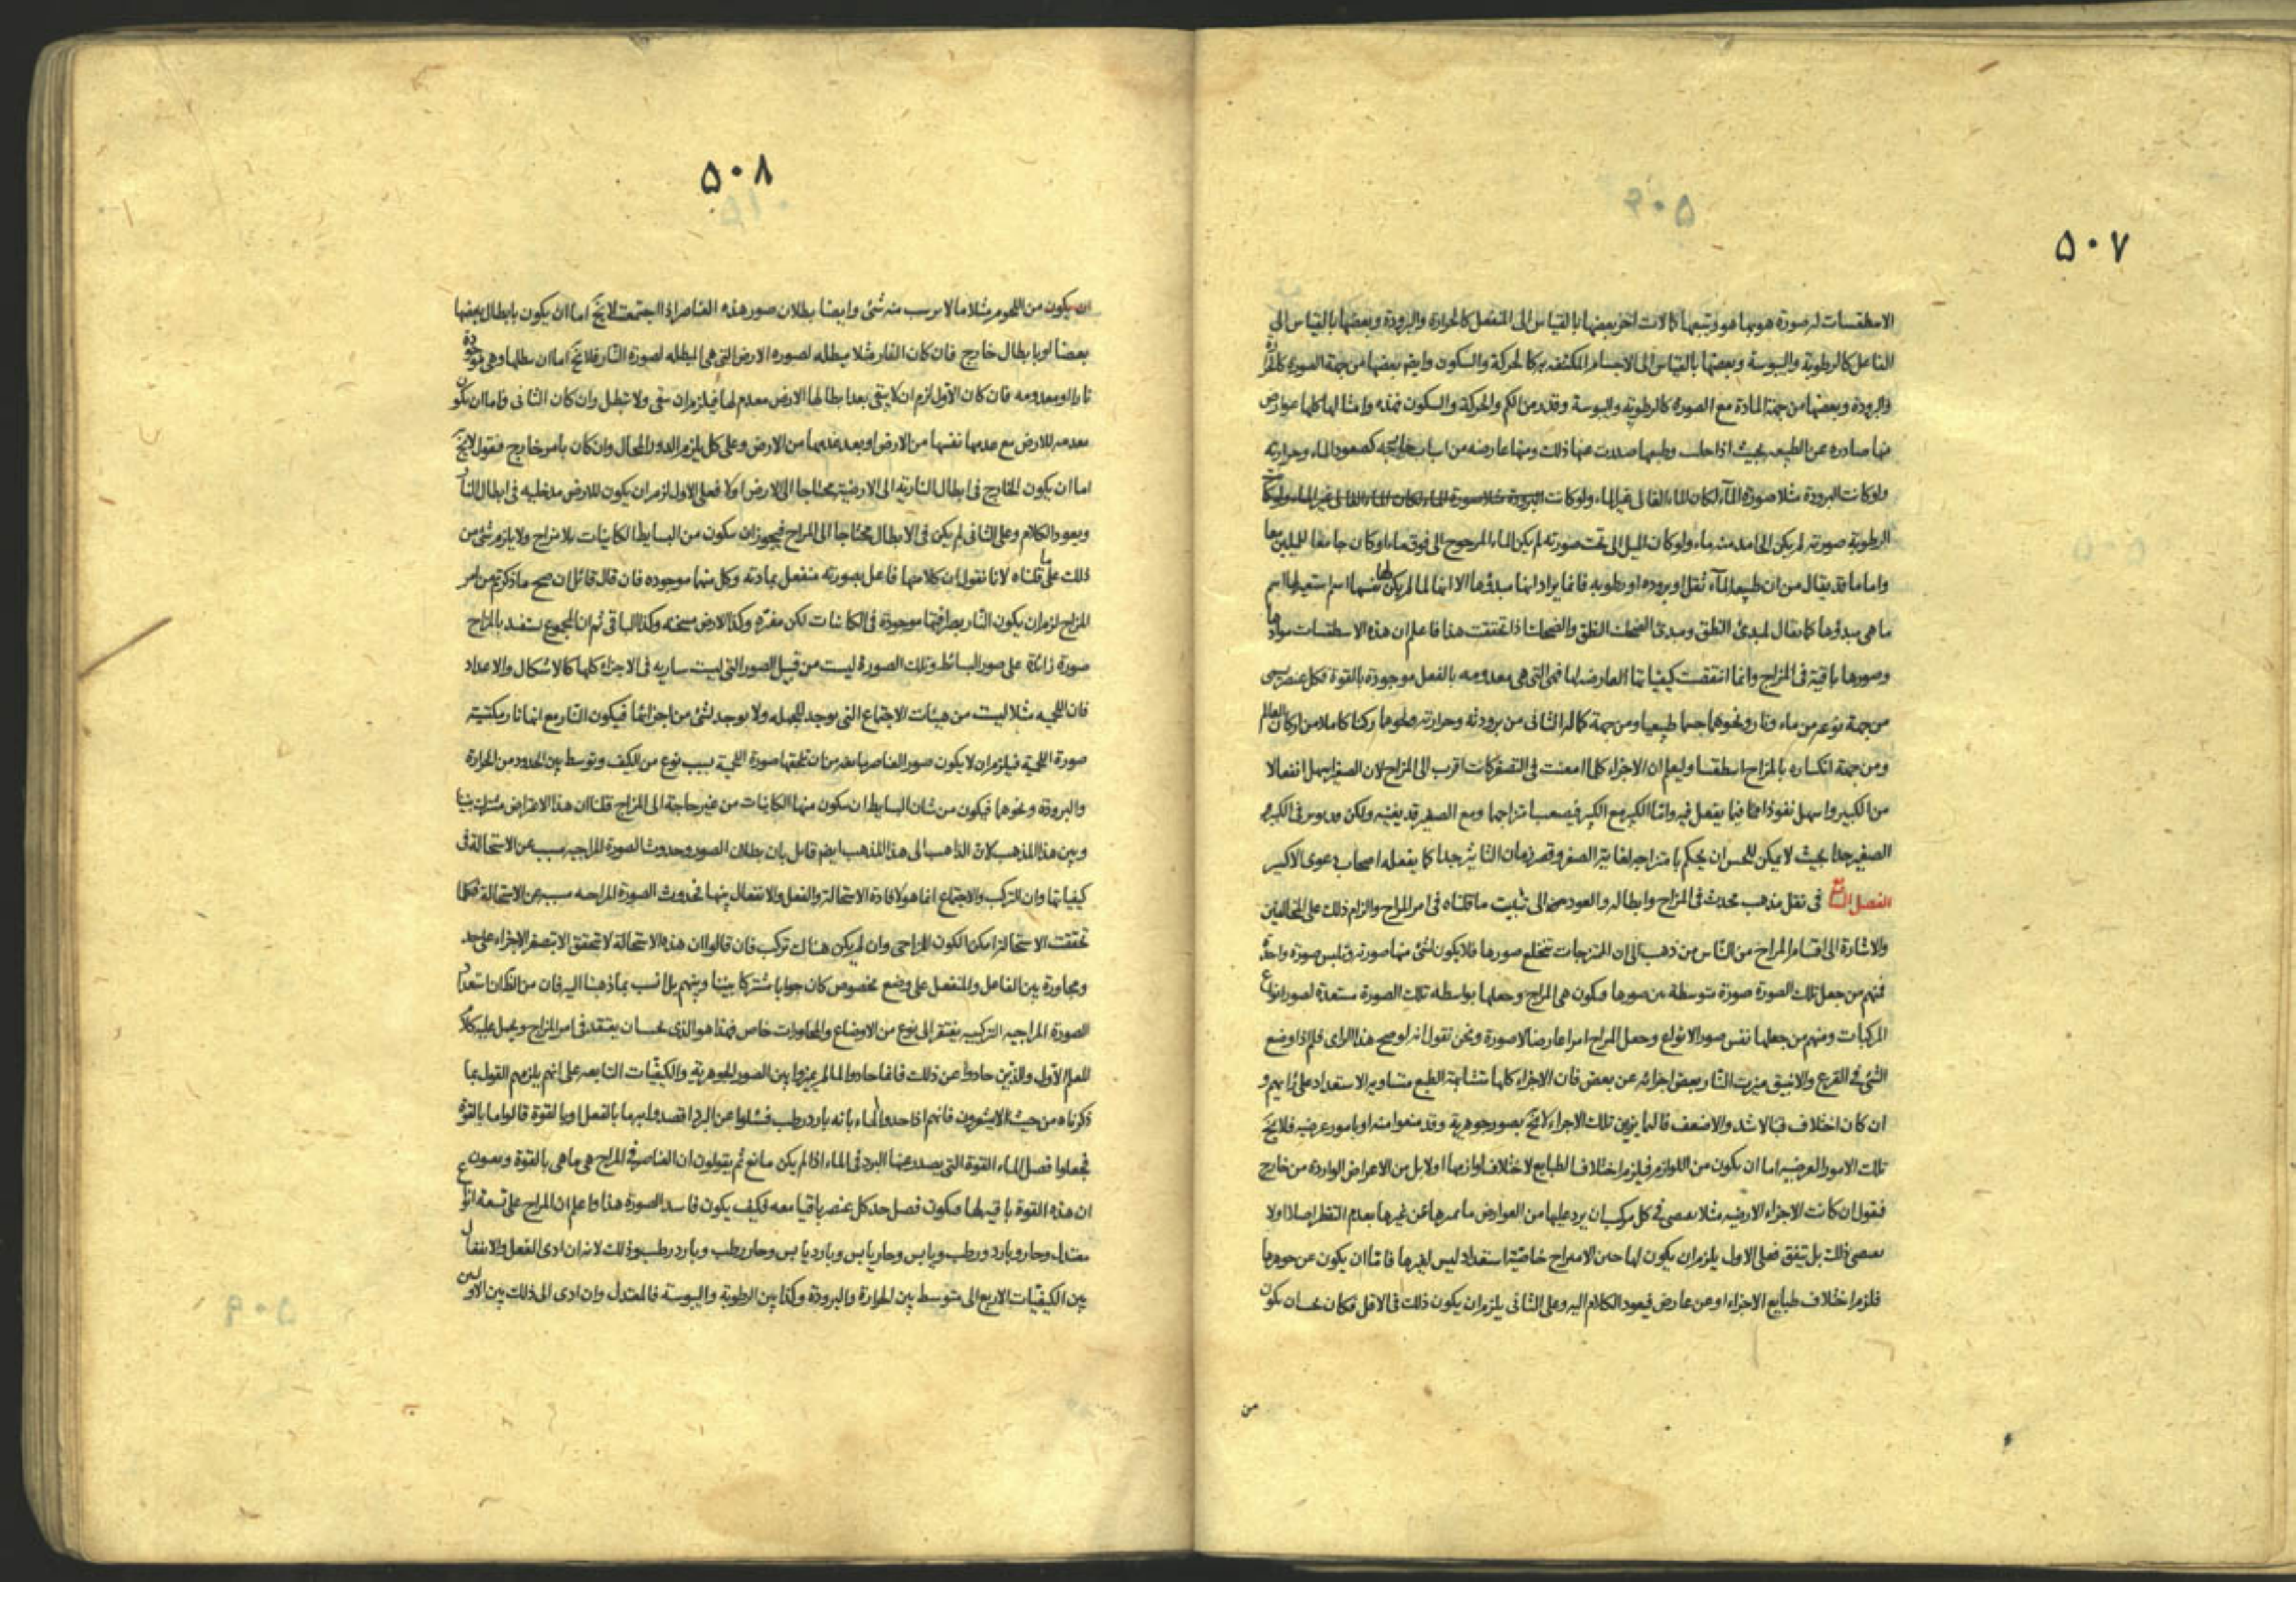 ٥٠٧
الاسطقسات له صورة هو بها هو ويتبعها كمالات اخر بعضها بالقياس الى المنفعل كالحرارة والبرودة وبعضها بالقياس الى
الفاعل كالرطوبة واليبوسة وبعضها بالقياس الى الاجسام المكتنفه به كالحركة والسكون وايضا بعضها من جهة الصورة كالحرارة
والبرودة وبعضها من جهة المادة مع الصورة كالرطوبة واليبوسة وقدر من الكم والحركة والسكون فهذه وامثالها كلها عوارض
منها صادره عن الطبيعه بحيث اذا خليت وطبعها صدرت عنها ذلك ومنها عارضه من اسباب خارجه كصعود الماء وحرارته
ولو كانت البرودة مثلا صورة الماء لكان الماء الغالى غير الماء ولو كانت البرودة مثلا صورة الماء لكان الماء الغالى غير الماء ولو كانت
الرطوبة صورته لم يكن الجامد منه ماء ولو كان الميل الى تحت صورته لم يكن الماء المرجوح الى فوق ماء او كان جامعا للميلين معا
واما ما قد يقال من ان طبيعه الماء ثقل او بروده او رطوبه فانما يراد انها مبدؤها الا انها لما لم يكن لها نفسها اسم استعير لها اسم
ما هى مبدؤها كما يقال لمبدئ النطق ومبدئ الضحك النطق والضحك اذا تحققت هذا فاعلم ان هذه الاسطقسات موادها
وصورها باقية فى المزاج وانما انتقصت كيفياتها العارضه لها فهى التى هى معدومه بالفعل موجودة بالقوة فكل عنصر يسمى
من جهة نوعه من ماء ونار ونحوها جسما طبيعيا ومن جهة كماله الثانى من برودته وحرارته ونحوها ركنا كاملا من اركان العالم
ومن جهة انكساره بالمزاج اسطقسا وليعلم ان الاجزاء كلما امعنت فى التصغر كانت اقرب الى المزاج لان الصغير اسهل انفعالا
من الكبير واسهل نفوذا فيما يفعل فيه واما الكبير مع الكبير فيصعب امتزاجها ومع الصغير قد يفنيه ولكن
الصغير جدا بحيث لا يمكن للحس ان يحكم بامتزاجه لغاية الصغر وقصر زمان التاثير جدا كما يفعله اصحاب دعوى الاكسير
الفصل فى نقل مذهب محدث فى المزاج وابطاله والعود منه الى تثبيت ما قلناه فى امر المزاج والزام ذلك على المخالفين
والاشارة الى اقسام المزاج من الناس من ذهب الى ان الممتزجات تنخلع صورها فلا يكون لشئ منها صورته وتلبس صورة واحدة
فمنهم من جعل تلك الصورة صورة متوسطة بين صورها فيكون هى المزاج وجعلها بواسطه تلك الصورة مستعدة لصور انواع
المركبات ومنهم من جعلها نفس صور الانواع وجعل المزاج امرا عارضا لا صورة ونحن نقول انه لو صح هذا الراى فلم اذا وضع
الشئ فى القرع والانبيق ميزت النار بعض اجزائه عن بعض فان الاجزاء كلها متشابهة الطبع متساوية الاستعداد على رايهم و
ان كان اختلاف فبالاشد والاضعف فالمايز بين تلك الاجزاء لا يخ بصور جوهرية وقد منعوا منه او بامور عرضيه فلا يخ
تلك الامور العرضيه اما ان يكون من اللوازم فيلزم اختلاف الطبايع لاختلاف لوازمها او لا بل من الاعراض الواردة من خارج
فنقول ان كانت الاجزاء الارضيه مثلا يقتضى فى كل مركب ان يرد عليها من العوارض ما يميزها عن غيرها بعدم التقطر اصلا او لا
يقتضى ذلك بل يتفق فعلى الاول يلزم ان يكون لها حين الامتزاج خاصية استعداد ليس لغيرها فاما ان يكون عن جوهرها
فلزم اختلاف طبايع الاجزاء او عن عارض فيعود الكلام اليه وعلى الثانى يلزم ان يكون ذلك فى الاقل فكان يجب ان يكون
من
٥٠٨
ان يكون من اللحوم مثلا ما لا يرسب منه شئ وايضا بطلان صور هذه العناصر اذا اجتمعت لا يخ اما ان يكون بابطال بعضها
بعضا او بابطال خارج فان كان النار مثلا مبطله لصوره الارض التى هى المبطله لصورة النار فلا يخ اما ان يبطلها وهى موجودة
نارا او معدومه فان كان الاول لزم ان لا يبقى بعد ابطالها الارض معدم لها فيلزم ان تبقى ولا تبطل وان كان الثانى فاما ان يكون
معدمه للارض مع عدمها نفسها من الارض او بعد عدمها من الارض وعلى كل يلزم الدور المحال وان كان بامر خارج فنقول لا يخ
اما ان يكون الخارج فى ابطال الناريه الى الارضية محتاجا الى الارض او لا فعلى الاول لزم ان يكون للارض مدخليه فى ابطال النار
ويعود الكلام وعلى الثانى لم يكن فى الابطال محتاجا الى المزاج فيجوز ان يتكون من البسايط الكاينات بلا مزاج ولا يلزم شئ من
ذلك على ما قلناه لانا نقول ان كلا منها فاعل بصورته منفعل بمادته وكل منها موجوده فان قال قائل ان صح ما ذكرتم من امر
المزاج لزم ان يكون النار بصرافتها موجودة فى الكائنات لكن مفترة وكذا الارض مسخنه وكذا الباقى ثم ان المجموع يستفيد بالمزاج
صورة زائدة على صور البسائط وتلك الصورة ليست من قبيل الصور التى ليست ساريه فى الاجزاء كلها كالاشكال والاعداد
فان اللحميه مثلا ليست من هيئات الاجتماع التى يوجد للجمله ولا يوجد لشئ من اجزائها فيكون النار مع انها نار مكتسية
صورة اللحمية فيلزم ان لا يكون صور العناصر مانعة من ان تلحقها صورة اللحمية بسبب نوع من الكيف وتوسط بين الحدود من الحرارة
والبرودة ونحوها فيكون من شان البسايط ان يتكون منها الكاينات من غير حاجة الى المزاج قلنا ان هذا الاعتراض مشترك بيننا
وبين هذا المذهب لان الذاهب الى هذا المذهب ايضا قايل بان بطلان الصور وحدوث الصورة المزاجيه سبب عن الاستحالة فى
كيفياتها وان التركب والاجتماع انما هو لافادة الاستحالة والفعل والانفعال بينها فحدوث الصورة المزاجيه سبب عن الاستحالة فكلما
تحققت الاستحالة امكن الكون المزاجى وان لم يكن هناك تركب فان قالوا ان هذه الاستحالة لا تتحقق الا بتصغر الاجزاء على حد
ومجاورة بين الفاعل والمنفعل على وضع مخصوص كان جوابا مشتركا بيننا وبينهم بل انسب بما ذهبنا اليه فان من الظان استعداد
الصورة المزاجيه التركيبيه يفتقر الى نوع من الاوضاع والمجاورات خاص فهذا هو الذى يجب ان يعتقد فى امر المزاج ويحمل عليه كلام
المعلم الاول والذين حادوا عن ذلك فانما حادوا لما لم يميزوا بين الصور الجوهرية والكيفيات التابعه على انهم يلزمهم القول بما
ذكرناه من حيث لا يشعرون فانهم اذا حدوا الماء بانه بارد رطب فسئلوا عن البرد اقصدوا بهما بالفعل او بالقوة قالوا ما بالقوة
فجعلوا فصل الماء القوة التى يصدر عنها البرد فى الماء اذا لم يكن مانع ثم يقولون ان العناصر فى المزاج هى ما هى بالقوة ويعنون
ان هذه القوة باقيه لها فيكون فصل حد كل عنصر باقيا معه فكيف يكون فاسد الصورة هذا واعلم ان المزاج على تسعة انواع
معتدل وحار وبارد ورطب ويابس وحار يابس وبارد يابس وحار رطب وبارد رطب وذلك لانه ان ادى الفعل والانفعال
بين الكيفيات الاربع الى متوسط بين الحرارة والبرودة وكذا بين الرطوبة واليبوسة فالمعتدل وان ادى الى ذلك بين الاولين